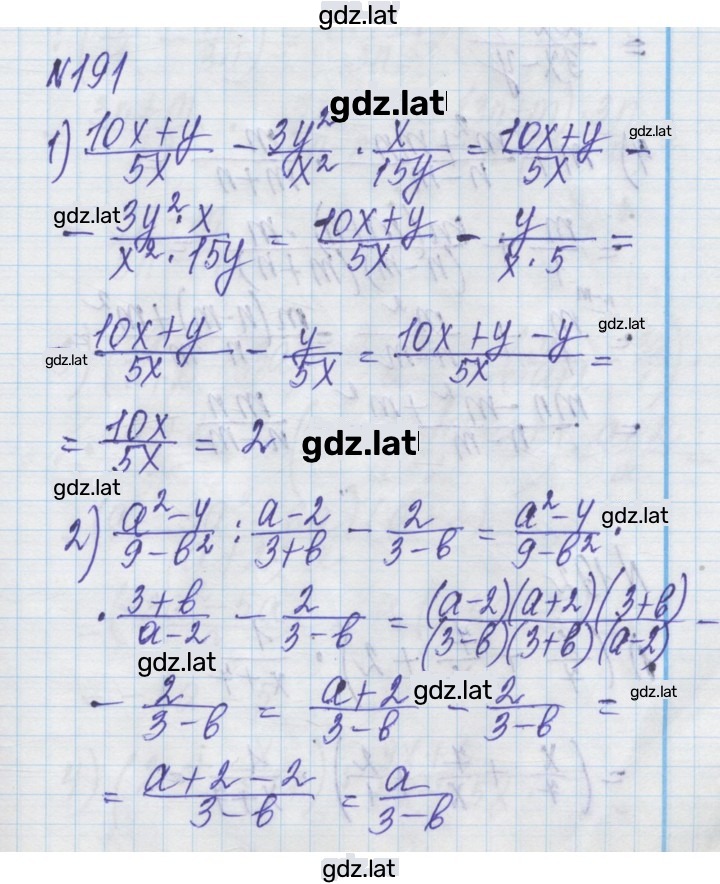 gdz.lat
№191
gdz.lat
1) (10x+y)/(5x) - (3y²)/(x²) · x/(15y) = (10x+y)/(5x) -
gdz.lat
gdz.lat
- (3y²·x)/(x²·15y) = (10x+y)/(5x) - y/(x·5) =
gdz.lat
- (10x+y)/(5x) - y/(5x) = (10x+y-y)/(5x) =
gdz.lat
= (10x)/(5x) = 2
gdz.lat
gdz.lat
2) (a²-4)/(9-b²) : (a-2)/(3+b) - 2/(3-b) = (a²-4)/(9-b²) ·
gdz.lat
· (3+b)/(a-2) - 2/(3-b) = ((a-2)(a+2)(3+b))/((3-b)(3+b)(a-2)) -
gdz.lat
- 2/(3-b) = (a+2)/(3-b) - 2/(3-b) =
gdz.lat
gdz.lat
= (a+2-2)/(3-b) = a/(3-b)
gdz.lat